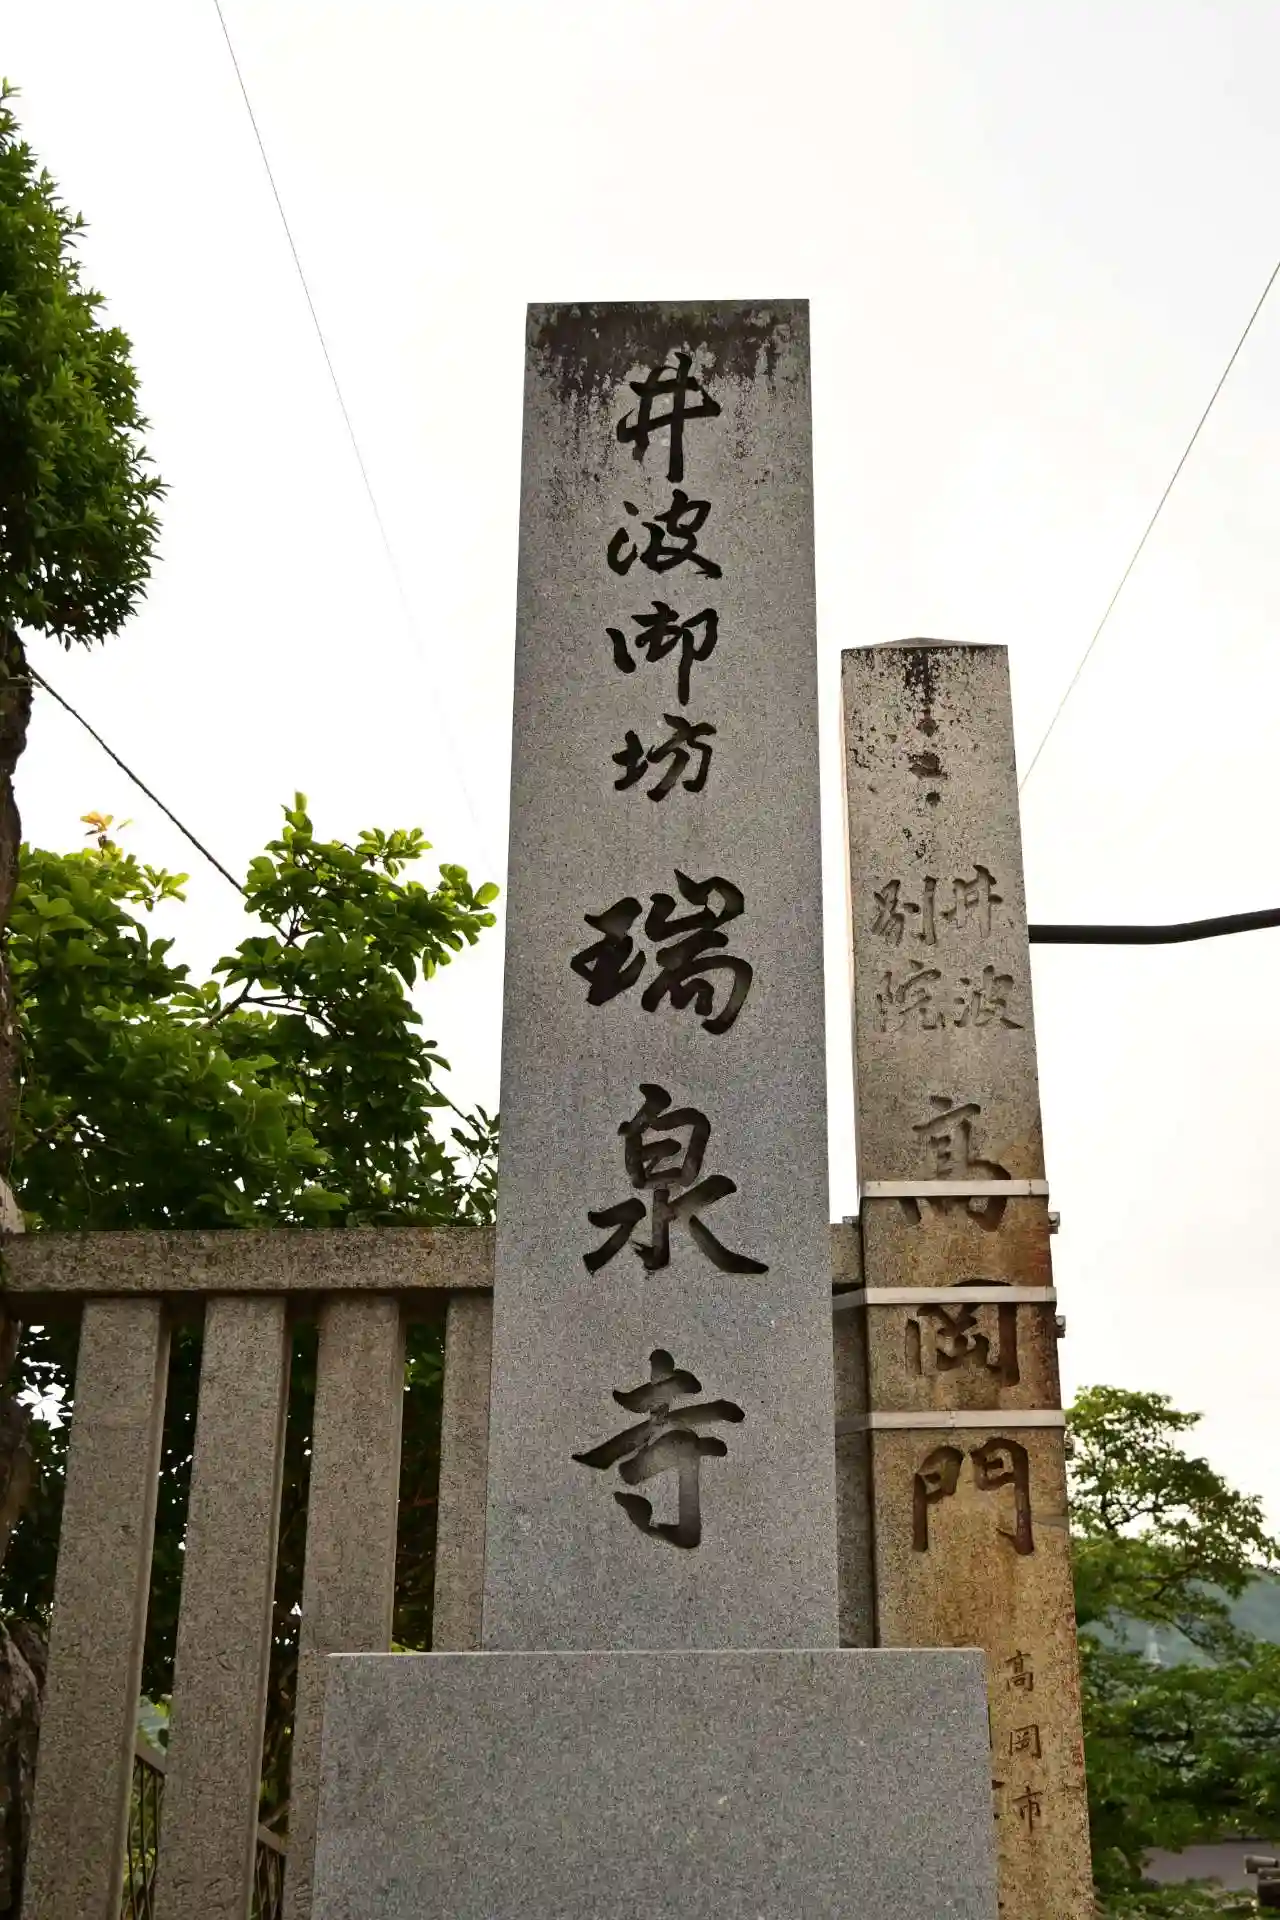 井波御坊 瑞泉寺
井波
別院
高岡門
高岡市